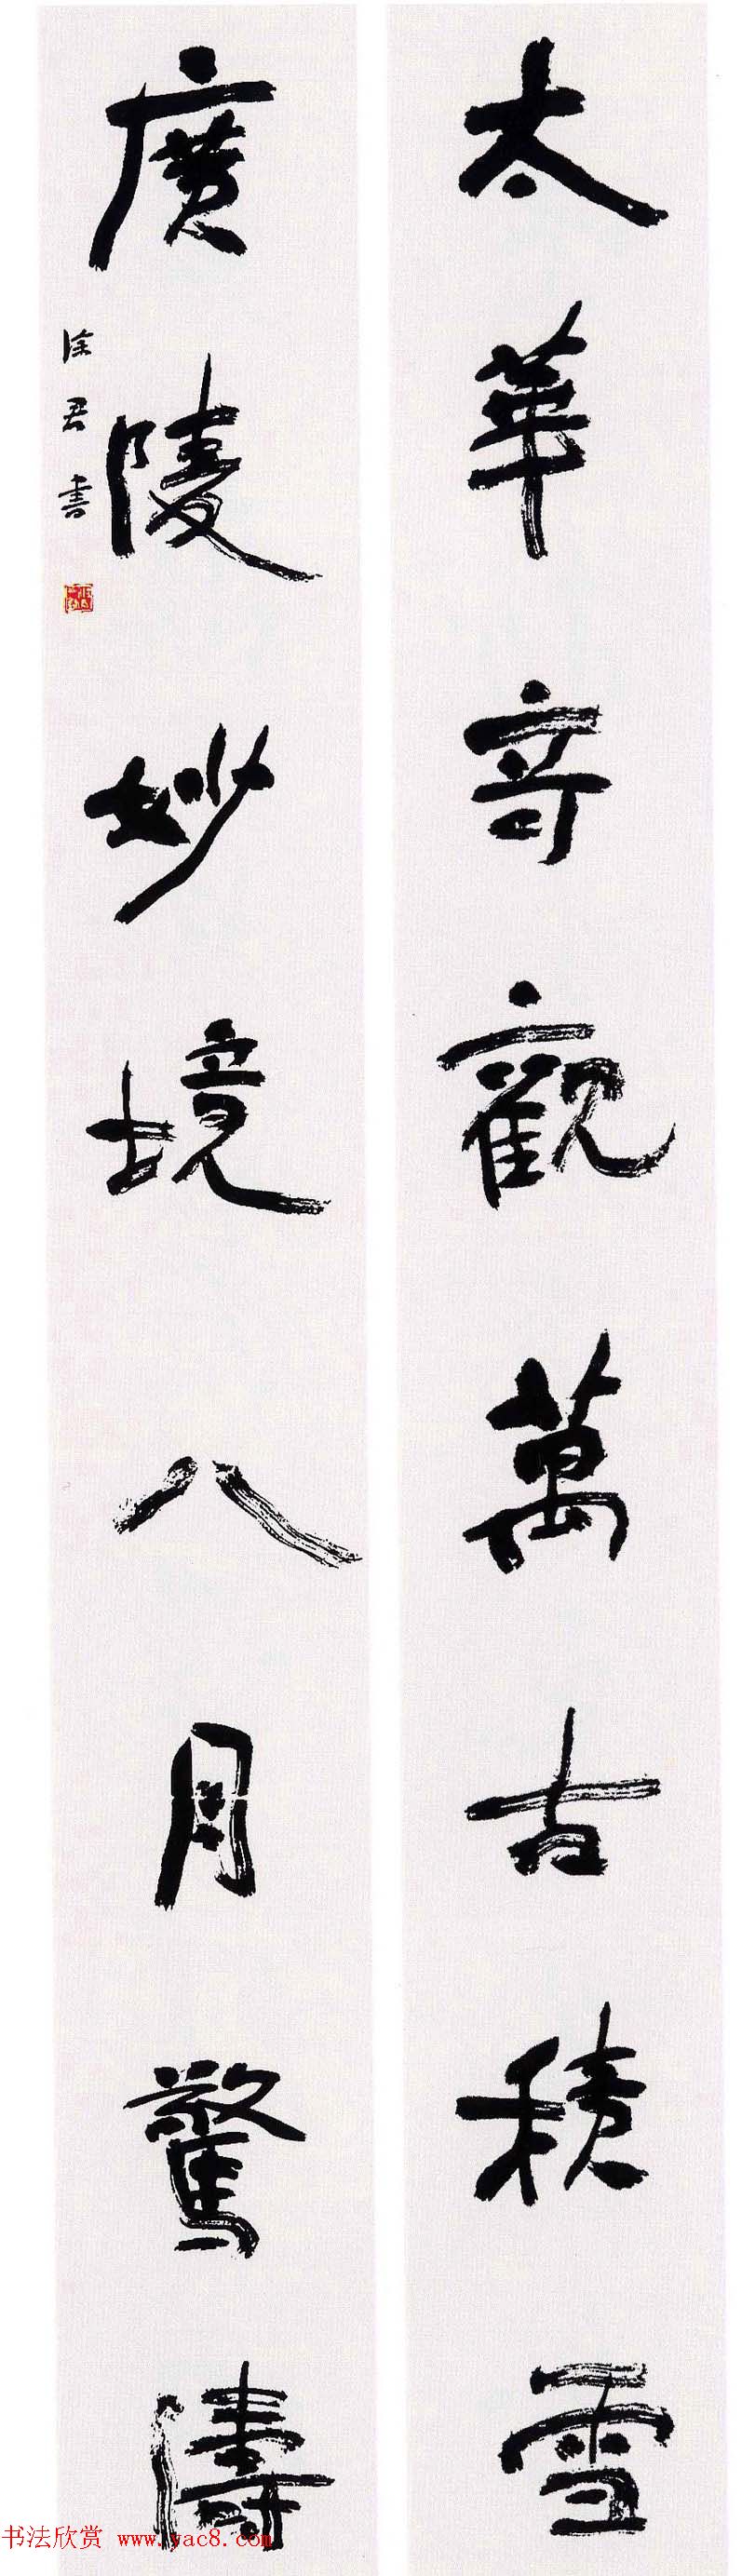 太華奇觀萬古積雪
廣陵妙境八月驚濤
徐君書
书法欣赏 www.yac8.com